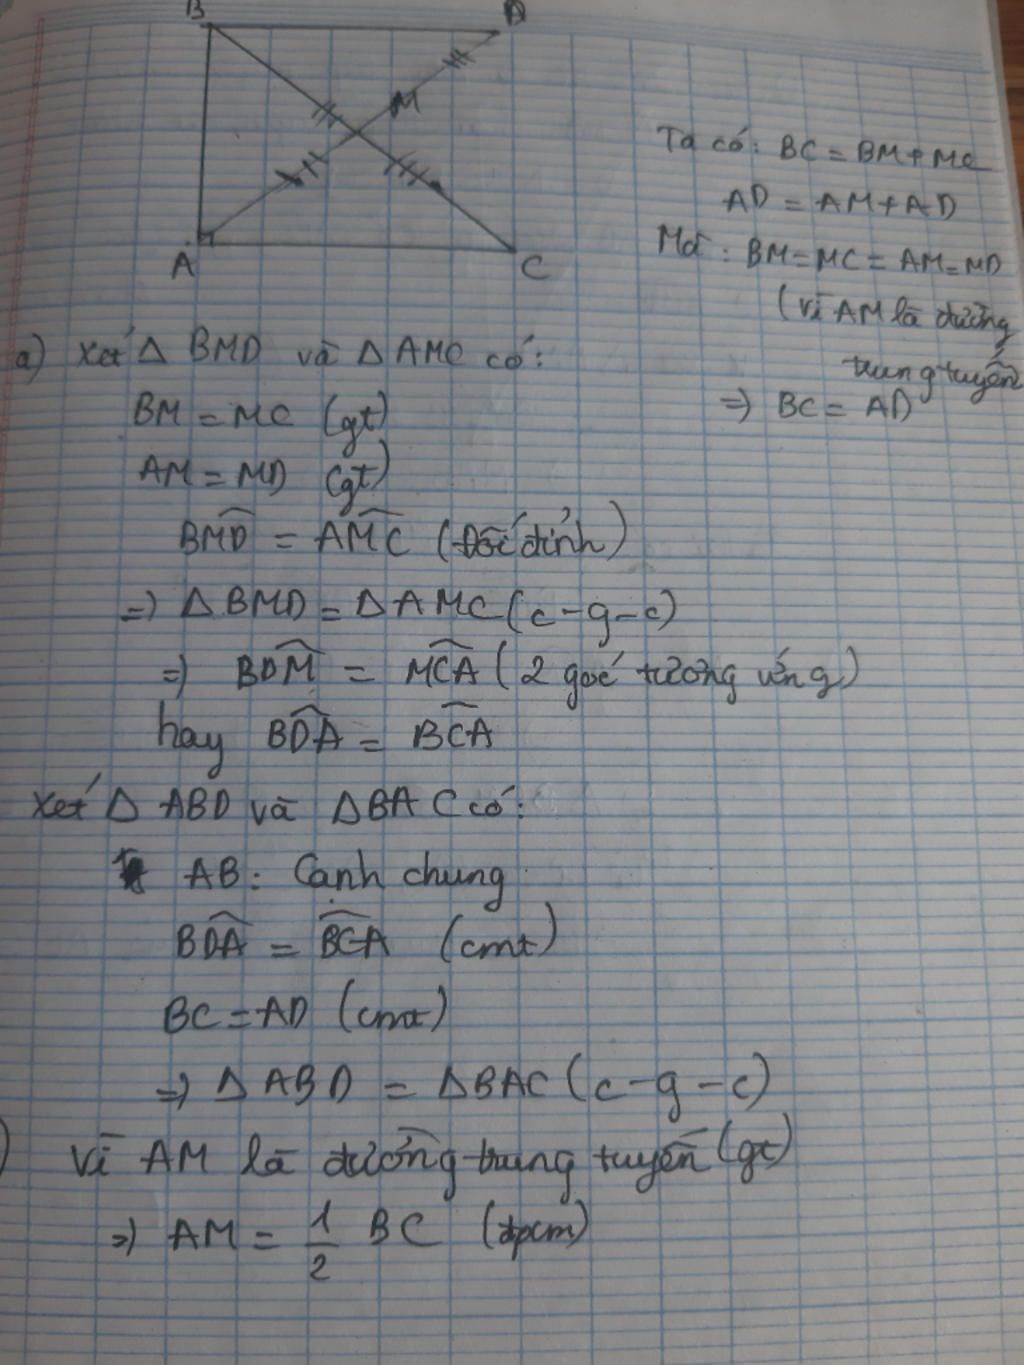 B D
M
A C
Ta có: BC = BM + MC
AD = AM + AD
Mà: BM = MC = AM = MD
(vì AM là đường
trung tuyến
=) BC = AD
a) Xét Δ BMD và Δ AMC có:
BM = MC (gt)
AM = MD (gt)
BMD̂ = AM̂C (Đối đỉnh)
=) Δ BMD = Δ AMC (c-g-c)
=) BD̂M = MĈA (2 góc tương ứng)
hay BD̂A = BĈA
Xét Δ ABD và Δ BAC có:
AB: Cạnh chung
BD̂A = BĈA (cmt)
BC = AD (cmt)
=) Δ ABD = Δ BAC (c-g-c)
) Vì AM là đường trung tuyến (gt)
=) AM = 1/2 BC (đpcm)